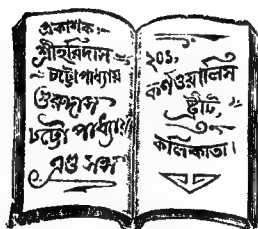 প্রকাশক:—
শ্রীহরিদাস
চট্টোপাধ্যায়
গুরুদাস
চট্টোপাধ্যায়
এণ্ড সন্স
২০১,
কর্নওয়ালিস
ষ্ট্রীট,
কলিকাতা।